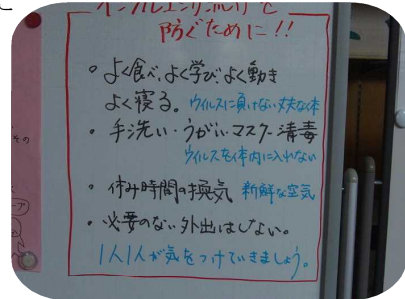 と
インフルエンザ流行を
防ぐために!!
・よく食べ、よく学び、よく動き
よく寝る。ウイルスに負けない丈夫な体
・手洗い・うがい・マスク・清毒
ウイルスを体内に入れない
・休み時間の換気 新鮮な空気
・必要のない外出はしない。
1人1人が気をつけていきましょう。
その